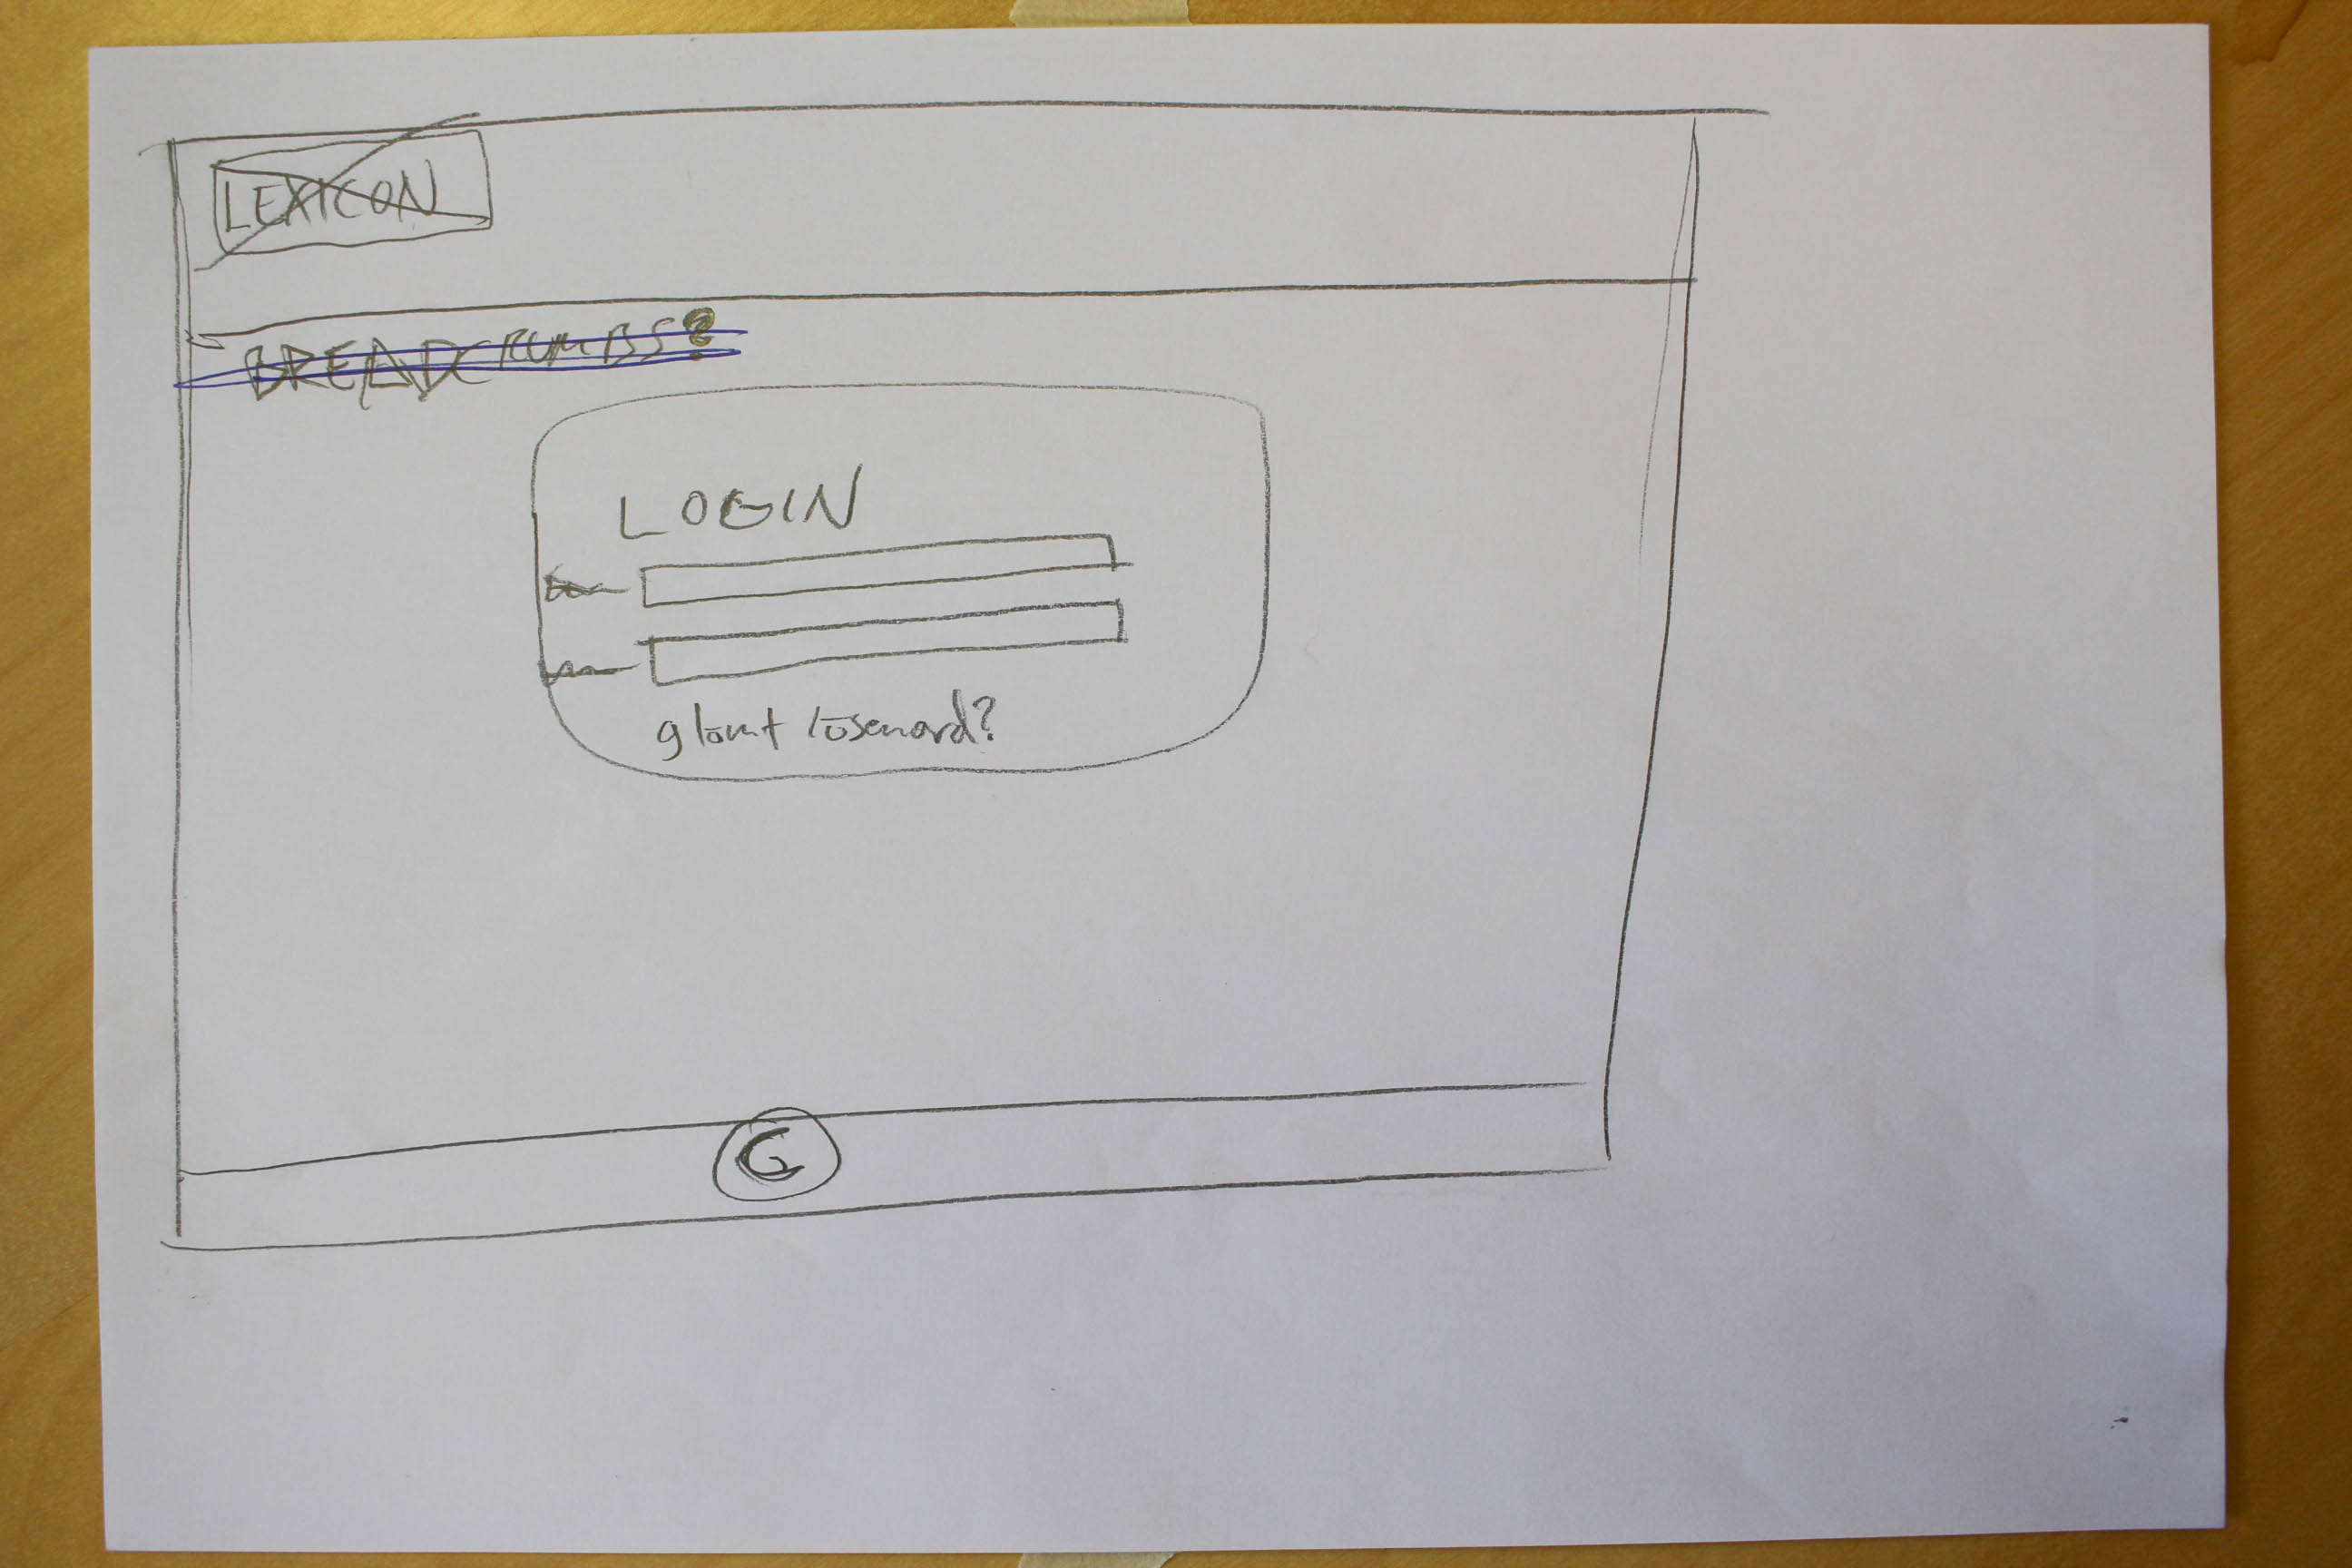 LEXICON
BREADCRUMBS?
LOGIN
glömt lösenord?
C